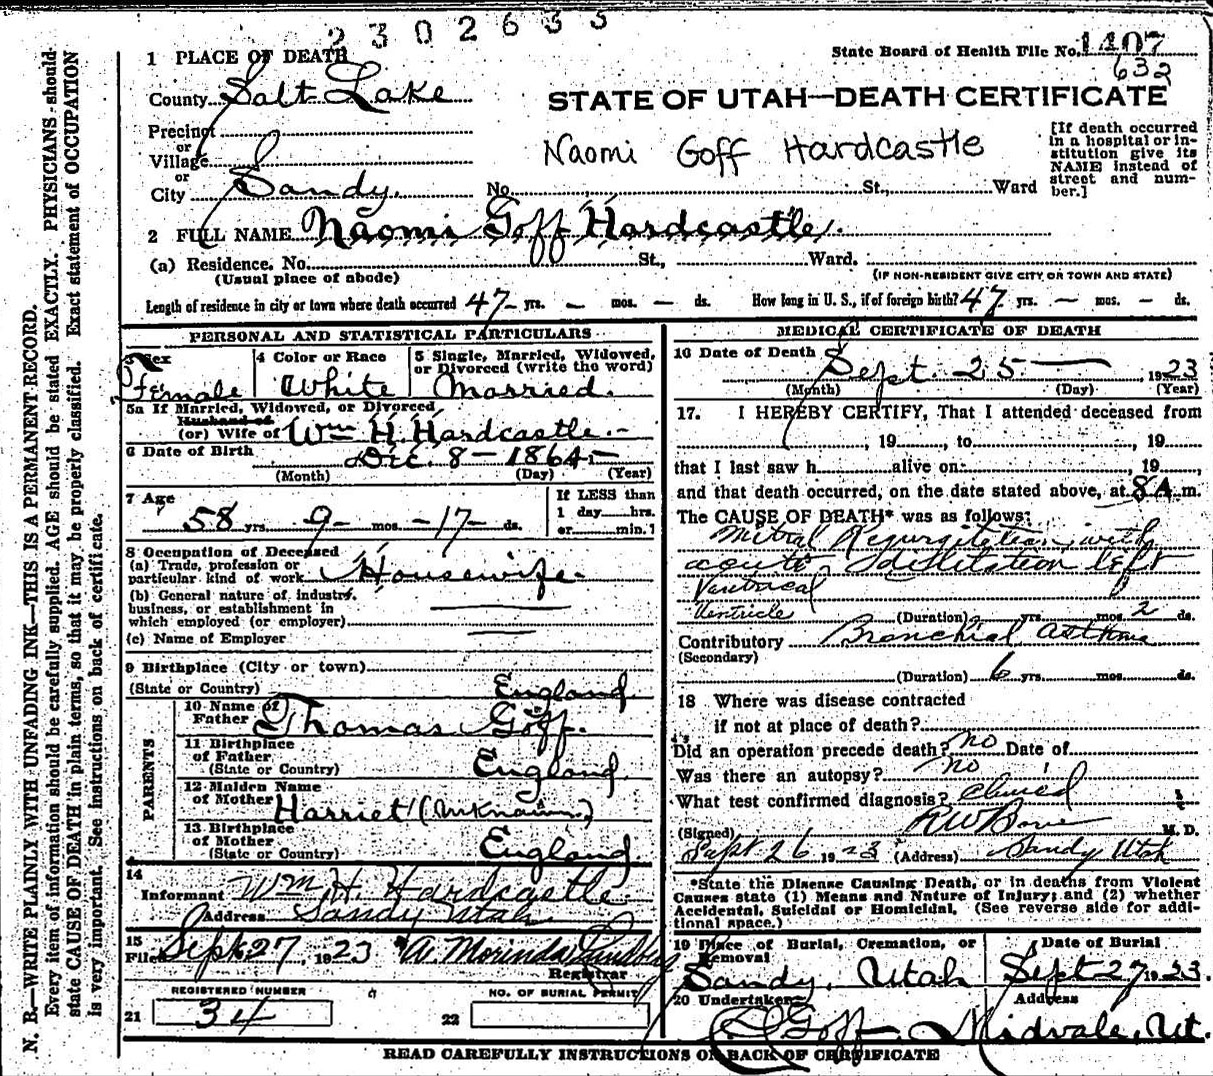 2302635
State Board of Health File No. 1407
632
1 PLACE OF DEATH
County Salt Lake
STATE OF UTAH—DEATH CERTIFICATE
Precinct
or
Village
or
City Sandy.
Naomi Goff Hardcastle
[If death occurred in a hospital or in-
stitution give its
NAME instead of
street and num-
ber.]
No. St., Ward
2 FULL NAME Naomi Goff Hardcastle.
(a) Residence. No. St., Ward.
(Usual place of abode)
(IF NON-RESIDENT GIVE CITY OR TOWN AND STATE)
Length of residence in city or town where death occurred 47 yrs. — mos. — ds.
How long in U. S., if of foreign birth? 47 yrs. — mos. — ds.
PERSONAL AND STATISTICAL PARTICULARS
3 Sex
Female
4 Color or Race
White
5 Single, Married, Widowed,
or Divorced (write the word)
Married.
5a If Married, Widowed, or Divorced
Husband of
(or) Wife of Wm H. Hardcastle.
6 Date of Birth Dec. 8 - 1864
(Month) (Day) (Year)
7 Age
58 yrs. 9 mos. 17 ds.
If LESS than
1 day hrs.
or min.?
8 Occupation of Deceased
(a) Trade, profession or
particular kind of work Housewife
(b) General nature of industry,
business, or establishment in
which employed (or employer)
(c) Name of Employer
9 Birthplace (City or town)
(State or Country) England
PARENTS
10 Name of
Father Thomas Goff.
11 Birthplace
of Father
(State or Country) England
12 Maiden Name
of Mother Harriet (Unknown)
13 Birthplace
of Mother
(State or Country) England
14
Informant Wm. H. Hardcastle
Address Sandy Utah.
15
Filed Sept. 27 1923 A. Morinda
Registrar
REGISTERED NUMBER
21 34
NO. OF BURIAL PERMIT
22
MEDICAL CERTIFICATE OF DEATH
16 Date of Death Sept. 25 1923
(Month) (Day) (Year)
17. I HEREBY CERTIFY, That I attended deceased from
, 19 , to , 19
that I last saw h alive on , 19 ,
and that death occurred, on the date stated above, at 8 A. m.
The CAUSE OF DEATH* was as follows:
Mitral Regurgitation with
acute left
Ventricle
(Duration) yrs. mos. 2 ds.
Contributory Bronchial Asthma
(Secondary)
(Duration) 6 yrs. mos. ds.
18 Where was disease contracted
if not at place of death?
Did an operation precede death? no Date of
Was there an autopsy? no
What test confirmed diagnosis? clinical
(Signed) M. D.
Sept 26 1923 (Address) Sandy Utah
*State the Disease Causing Death, or in deaths from Violent
Causes state (1) Means and Nature of Injury; and (2) whether
Accidental, Suicidal or Homicidal. (See reverse side for addi-
tional space.)
19 Place of Burial, Cremation, or
Removal
Sandy, Utah
Date of Burial
Sept 27 1923.
20 Undertaker
Goff
Address
Midvale, Ut.
READ CAREFULLY INSTRUCTIONS ON BACK OF CERTIFICATE
N. B.—WRITE PLAINLY WITH UNFADING INK—THIS IS A PERMANENT RECORD.
Every item of information should be carefully supplied. AGE should be stated EXACTLY. PHYSICIANS should
state CAUSE OF DEATH in plain terms, so that it may be properly classified. Exact statement of OCCUPATION
is very important. See instructions on back of certificate.